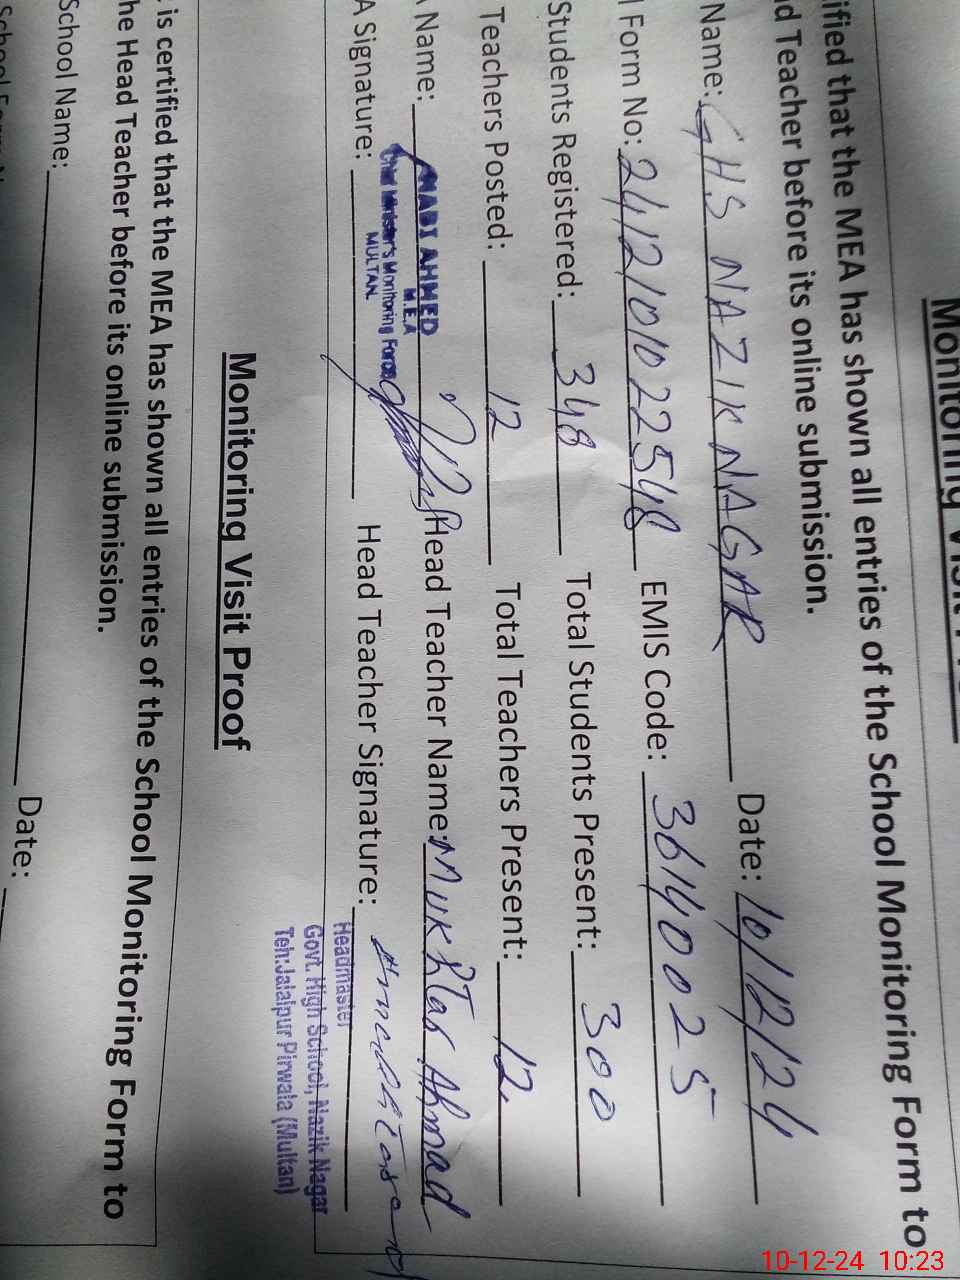 Monitoring Visit P
ified that the MEA has shown all entries of the School Monitoring Form to
d Teacher before its online submission.
Name: GHS NAZIK NAGAR Date: 10/12/24
l Form No: 2412101022548 EMIS Code: 36140025
Students Registered: 348 Total Students Present: 300
Teachers Posted: 12 Total Teachers Present: 12
A Name: NABI AHMED Head Teacher Name: Mukhtar Ahmad
M.E.A
Chief Minister's Monitoring Force
MULTAN.
A Signature: Head Teacher Signature:
Headmaster
Govt. High School, Nazik Nagar
Teh:Jalalpur Pirwala (Multan)
Monitoring Visit Proof
is certified that the MEA has shown all entries of the School Monitoring Form to
he Head Teacher before its online submission.
School Name: Date:
School Form N
10-12-24 10:23